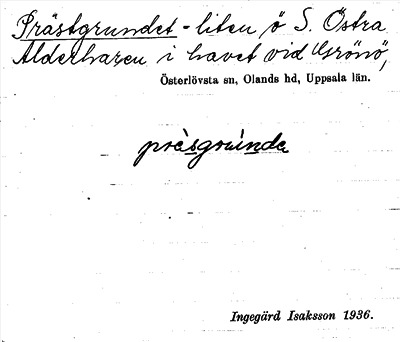 Prästgrundet - liten ö S. Östra
Alderharen i havet vid Grönö,
Österlövsta sn, Olands hd, Uppsala län.
prèsgrúndə
Ingegärd Isaksson 1936.